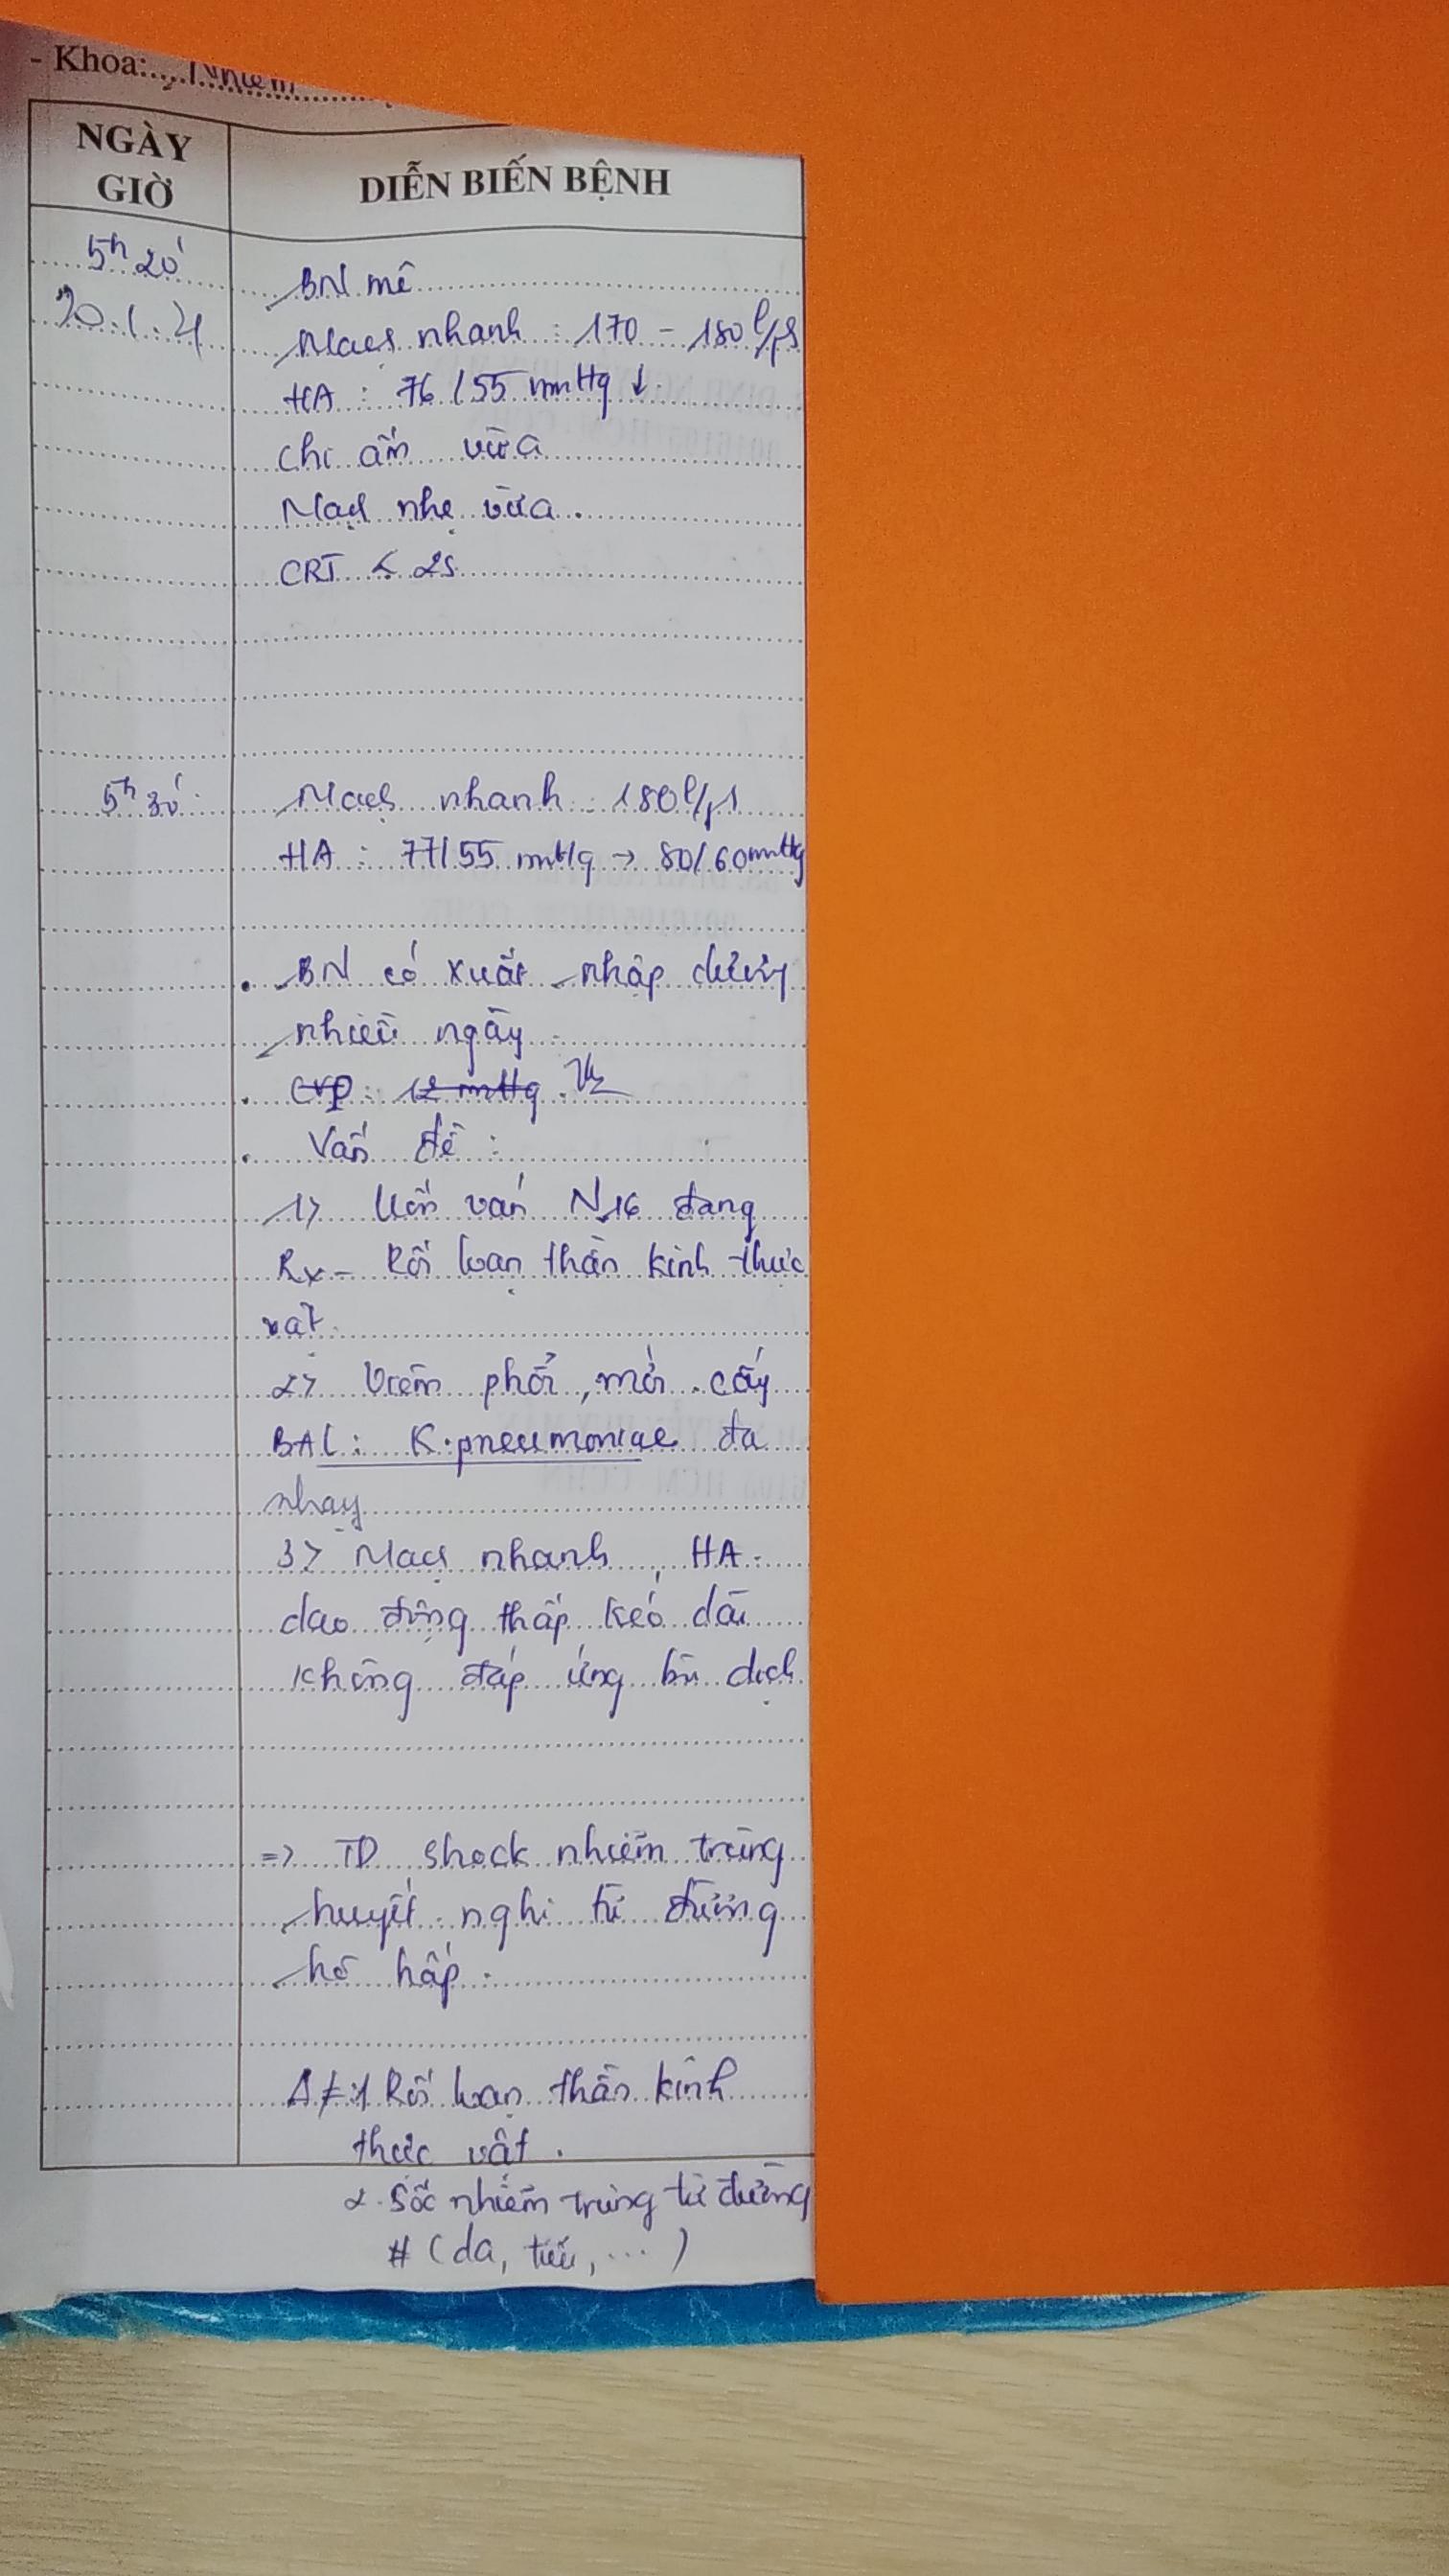 - Khoa:.... Nhiễm
NGÀY GIỜ
DIỄN BIẾN BỆNH
5h20'
20.1.21
BN mê
Mạch nhanh : 170 - 180 l/p
HA : 76/55 mmHg ↓
Chi ấm vừa
Mạch nhẹ vừa.
CRT < 2s
5h30'
Mạch nhanh : 180 l/p
HA : 77/55 mmHg → 80/60 mmHg
. BN có xuất nhập dương
nhiều ngày
. CVP : 12 mmHg.
. Vấn đề :
1) Uốn ván N16 đang
Rx - Rối loạn thần kinh thực
vật.
2) Viêm phổi, mở cấy
BAL: K.pneumoniae đa
nhạy
3) Mạch nhanh, HA
dao động thấp kéo dài
không đáp ứng bù dịch
=> TD shock nhiễm trùng
huyết nghi từ đường
hô hấp.
Δ≠ 1 Rối loạn thần kinh
thực vật.
2. Sốc nhiễm trùng từ đường
# (da, tiểu, ...)